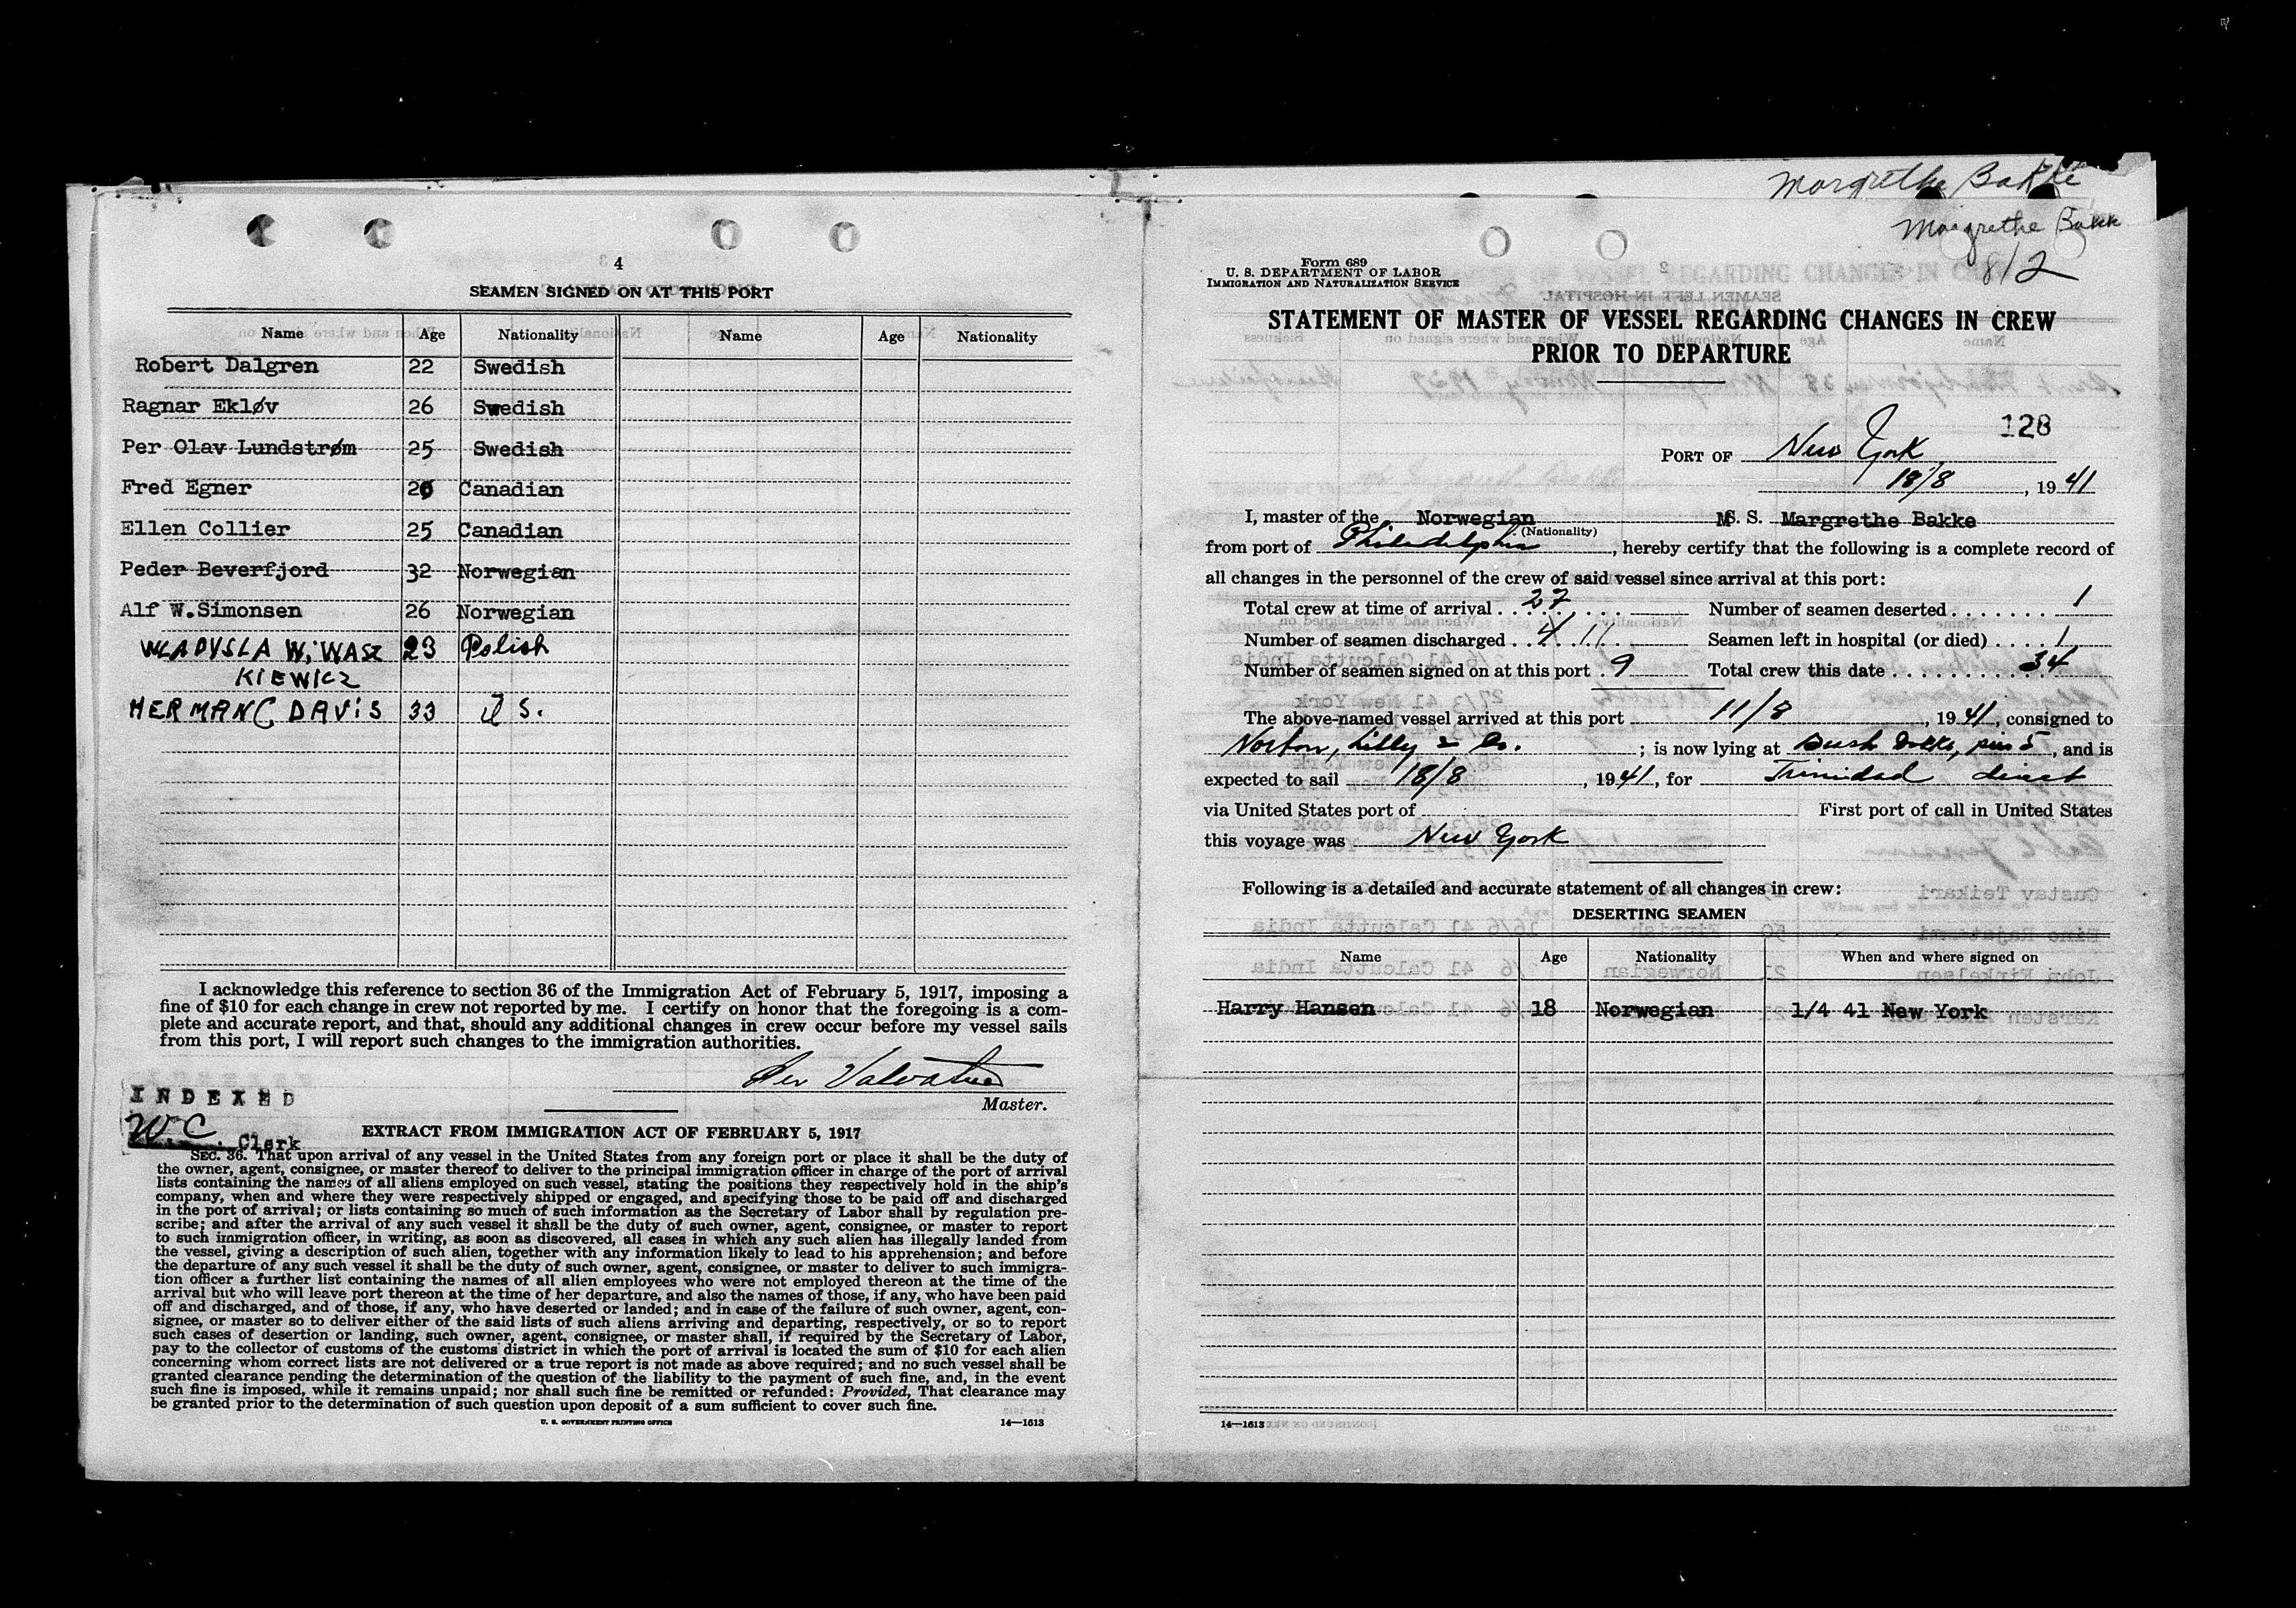 4
SEAMEN SIGNED ON AT THIS PORT
Name Age Nationality Name Age Nationality
Robert Dalgren 22 Swedish
Ragnar Ekløv 26 Swedish
Per Olav Lundstrøm 25 Swedish
Fred Egner 26 Canadian
Ellen Collier 25 Canadian
Peder Beverfjord 32 Norwegian
Alf W.Simonsen 26 Norwegian
WLADYSLA WiWASZ 23 Polish
KIEWICZ
HERMAN C DAVIS 33 U S.
I acknowledge this reference to section 36 of the Immigration Act of February 5, 1917, imposing a
fine of $10 for each change in crew not reported by me. I certify on honor that the foregoing is a com-
plete and accurate report, and that, should any additional changes in crew occur before my vessel sails
from this port, I will report such changes to the immigration authorities.
Master.
INDEXED
W.C. Clerk
EXTRACT FROM IMMIGRATION ACT OF FEBRUARY 5, 1917
SEC. 36. That upon arrival of any vessel in the United States from any foreign port or place it shall be the duty of
the owner, agent, consignee, or master thereof to deliver to the principal immigration officer in charge of the port of arrival
lists containing the names of all aliens employed on such vessel, stating the positions they respectively hold in the ship's
company, when and where they were respectively shipped or engaged, and specifying those to be paid off and discharged
in the port of arrival; or lists containing so much of such information as the Secretary of Labor shall by regulation pre-
scribe; and after the arrival of any such vessel it shall be the duty of such owner, agent, consignee, or master to report
to such immigration officer, in writing, as soon as discovered, all cases in which any such alien has illegally landed from
the vessel, giving a description of such alien, together with any information likely to lead to his apprehension; and before
the departure of any such vessel it shall be the duty of such owner, agent, consignee, or master to deliver to such immigra-
tion officer a further list containing the names of all alien employees who were not employed thereon at the time of the
arrival but who will leave port thereon at the time of her departure, and also the names of those, if any, who have been paid
off and discharged, and of those, if any, who have deserted or landed; and in case of the failure of such owner, agent, con-
signee, or master so to deliver either of the said lists of such aliens arriving and departing, respectively, or so to report
such cases of desertion or landing, such owner, agent, consignee, or master shall, if required by the Secretary of Labor,
pay to the collector of customs of the customs district in which the port of arrival is located the sum of $10 for each alien
concerning whom correct lists are not delivered or a true report is not made as above required; and no such vessel shall be
granted clearance pending the determination of the question of the liability to the payment of such fine, and, in the event
such fine is imposed, while it remains unpaid; nor shall such fine be remitted or refunded: Provided, That clearance may
be granted prior to the determination of such question upon deposit of a sum sufficient to cover such fine.
U. S. GOVERNMENT PRINTING OFFICE 14—1613
Margrethe Bakke
Margrethe Bakk
8/2
Form 689
U. S. DEPARTMENT OF LABOR
IMMIGRATION AND NATURALIZATION SERVICE
STATEMENT OF MASTER OF VESSEL REGARDING CHANGES IN CREW
PRIOR TO DEPARTURE
128
PORT OF New York
18/8, 1941
I, master of the Norwegian M S. S. Margrethe Bakke
(Nationality)
from port of Philadelphia, hereby certify that the following is a complete record of
all changes in the personnel of the crew of said vessel since arrival at this port:
Total crew at time of arrival 27 Number of seamen deserted 1
Number of seamen discharged 11 Seamen left in hospital (or died) 1
Number of seamen signed on at this port 9 Total crew this date 34
The above-named vessel arrived at this port 11/8, 1941, consigned to
Norton, Lilly & Co. ; is now lying at Bush Dokks, pier 5, and is
expected to sail 18/8, 1941, for Trinidad direct
via United States port of First port of call in United States
this voyage was New York
Following is a detailed and accurate statement of all changes in crew:
DESERTING SEAMEN
Name Age Nationality When and where signed on
Harry Hansen 18 Norwegian 1/4 41 New York
14—1613